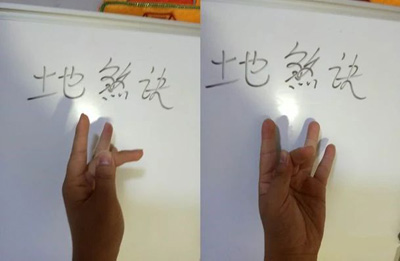 土地煞诀
土地煞诀